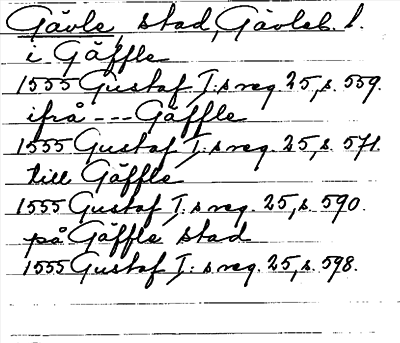 Gävle, stad, Gävleb. l.
i Gäffle
1555 Gustaf I:s reg. 25, s. 559.
ifrå --- Gäffle
1555 Gustaf I:s reg. 25, s. 571.
till Gäffle
1555 Gustaf I:s reg. 25, s. 590.
på Gäffle stad
1555 Gustaf I:s reg. 25, s. 598.